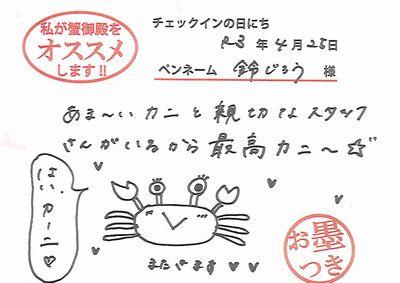 私が蟹御殿を
オススメ
します!!
チェックインの日にち
R3年4月25日
ペンネーム 鈴じろう 様
あま〜いカニと親切なスタッフ
さんがいるから最高カニ〜☆
はい、カーニ♡
またきます♥
お墨
つき